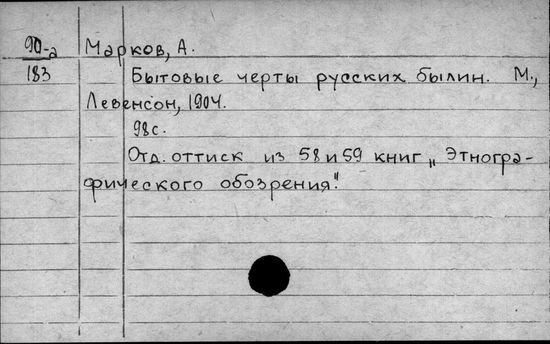 90-а Марков, А.
183 Бытовые черты русских былин. М.,
Левенсон, 1904.
98с.
Отд. оттиск из 58 и 59 книг „Этногра-
фического обозрения".